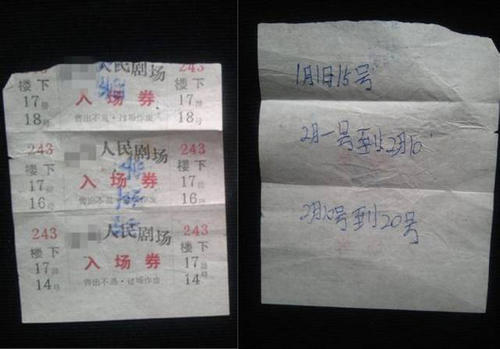 243 人民剧场 243
楼下 楼下
17排 入场券 17排
18号 售出不退·过场作废 18号
243 人民剧场 243
楼下 楼下
17排 入场券 17排
16号 售出不退·过场作废 16号
243 人民剧场 243
楼下 楼下
17排 入场券 17排
14号 售出不退·过场作废 14号
1月1日15号
2月一号到2月10
2月20号到20号